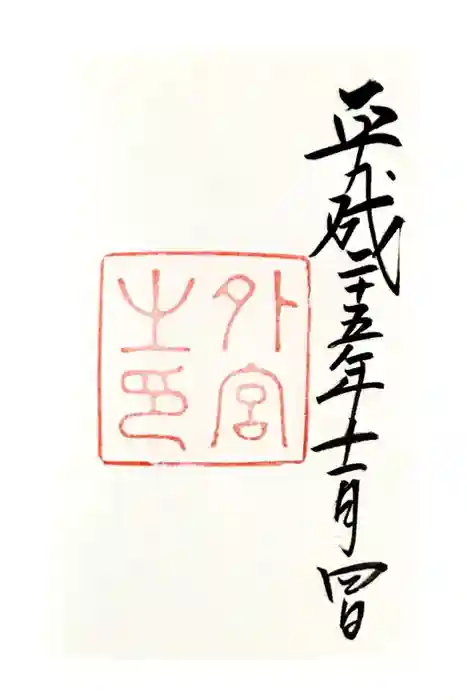 平成二十五年十一月四日
外宮
之印